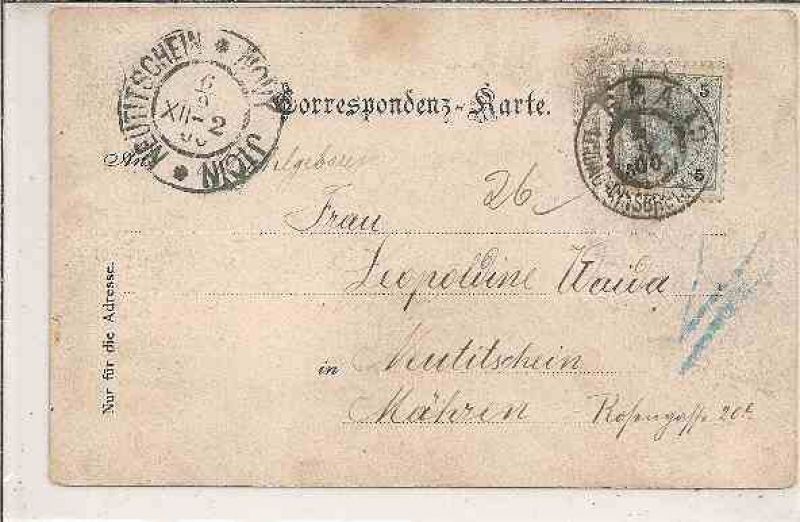 NEUTITSCHEIN * NOVÝ JIČÍN *
6
XII-2
5
5
Correspondenz-Karte.
An
26
Frau
Leopoldine Kaida
in Neutitschein
Mähren Rosengasse 20
Nur für die Adresse.